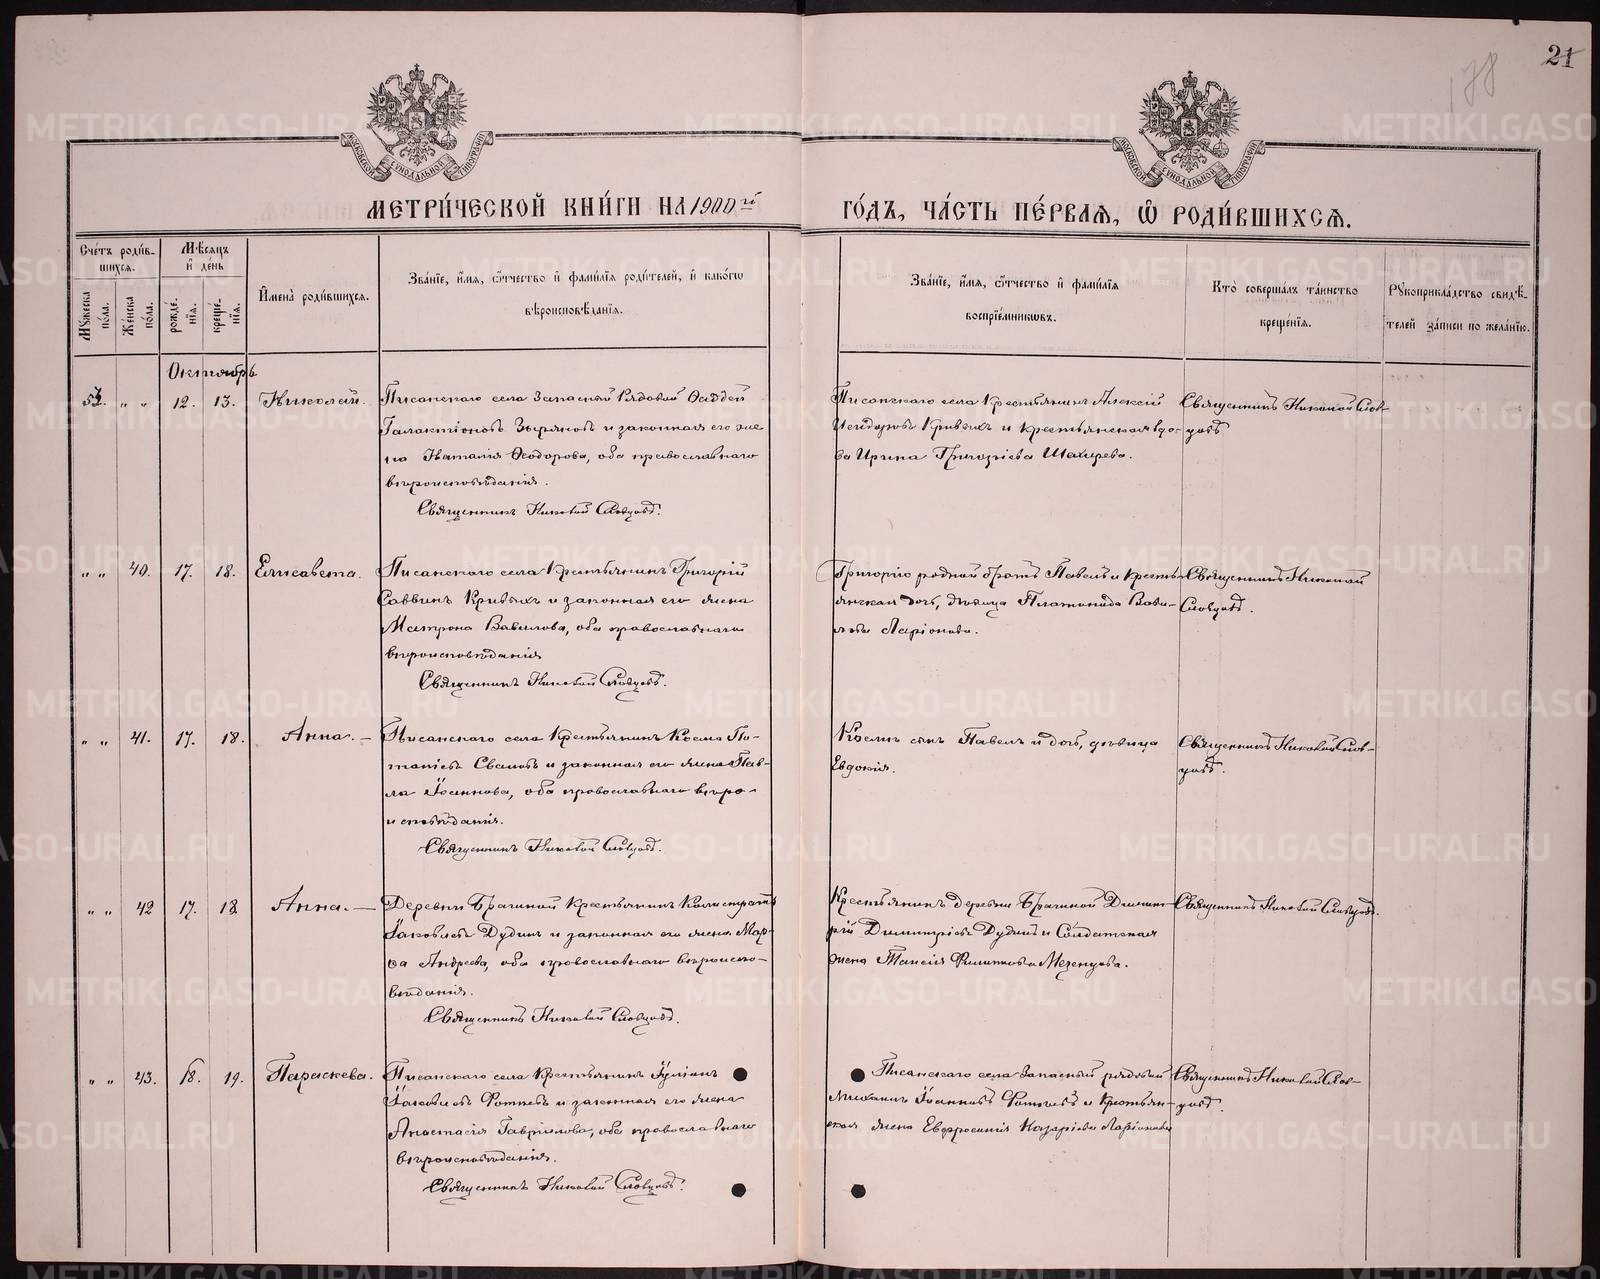 21
178
МЕТРИ́ЧЕСКОЙ КНИ́ГИ НА 1900й ГО́ДЪ, ЧА́СТЬ ПЕ́РВАѦ, Ѡ҆ РОДИ́ВШИХСѦ.
Сче́тъ роди́в-
шихсѧ.
Мѣ́сѧцъ
и҆ де́нь
Мꙋ́жеска по́ла.
Же́нска по́ла.
рожде́нїѧ.
креще́нїѧ.
И҆мена̀ роди́вшихсѧ.
Зва́нїе, и҆́мѧ, ѻ҆́тчество и҆ фами́лїѧ роди́телей, и҆ како́гѡ
вѣроисповѣ́данїѧ.
Зва́нїе, и҆́мѧ, ѻ҆́тчество и҆ фами́лїѧ
воспрїе́мникѡвъ.
Кто̀ соверша́лъ та́инство
креще́нїѧ.
Рꙋкоприкла́дство свидѣ́-
телей за́писи по жела́нїю.
Октябрь
„ „ 12. 13. Николай.
Писанскаго села Запасный Рядовой Фаддей
Галактіоновъ Зыряновъ и законная его же-
на Наталія Ѳеодорова, оба православнаго
вѣроисповѣданія.
Священникъ Николай Словцовъ.
Писанскаго села Крестьянинъ Алексій
Исидоровъ Кривыхъ и крестьянская вдо-
ва Ирина Григоріева
Священникъ Николай Слов-
цовъ
„ „ 40. 17. 18. Елисавета.
Писанскаго села Крестьянинъ Григорій
Саввинъ Кривыхъ и законная его жена
Матрона Вавилова, оба православнаго
вѣроисповѣданія
Священникъ Николай Словцовъ.
Григорію родной братъ Павелъ и кресть-
янская дочь, дѣвица Платонида Вави-
лова Ларіонова.
Священникъ Николай
Словцовъ.
„ „ 41. 17. 18. Анна. –
Писанскаго села Крестьянинъ Косма По-
таніевъ и законная его жена Пав-
ла Іоаннова, оба православнаго вѣро-
исповѣданія.
Священникъ Николай Словцовъ.
Космы сынъ Павелъ и дочь, дѣвица
Евдокія.
Священникъ Николай Слов-
цовъ.
„ „ 42 17. 18. Анна. –
Деревни Брагиной Крестьянинъ Каллистратъ
Іаковлевъ Дудинъ и законная его жена Мар-
ѳа Андреева, оба православнаго вѣроиспо-
вѣданія.
Священникъ Николай Словцовъ.
Крестьянинъ деревни Брагиной Димит-
рій Димитріевъ Дудинъ и Солдатская
жена Таисія Филиппова Мезенцева.
Священникъ Николай Словцовъ.
„ „ 43. 18. 19. Параскева.
Писанскаго села Крестьянинъ Іуліанъ
Іаковлевъ и законная его жена
Анастасія Гавріилова, оба православнаго
вѣроисповѣданія.
Священникъ Николай Словцовъ.
Писанскаго села Запасный рядовой
Михаилъ Іоанновъ и Крестьян-
ская жена Евфросинія Назаріева Ларіонова
Священникъ Николай Слов-
цовъ.
METRIKI.GASO-URAL.RU